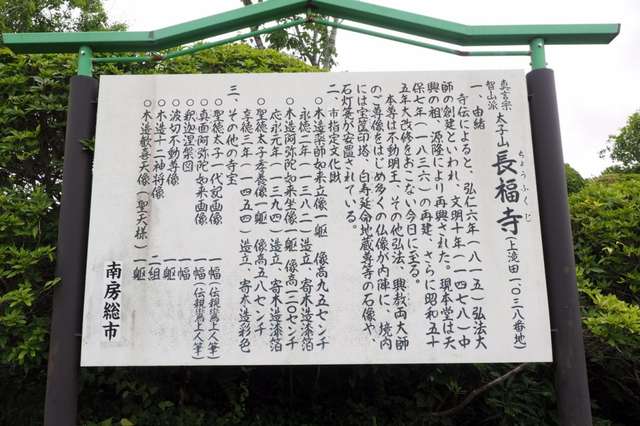 真言宗
智山派
太子山 長福寺 (上滝田一〇三八番地)
ちょうふくじ
一、由緒
寺伝によると、弘仁六年(八一五)弘法大
師の創建といわれ、文明十年(一四七八)中
興の祖、源隆により再興された。現本堂は天
保七年(一八三六)の再建、さらに昭和五十
五年大改修をおこない今日に至る。
本尊は不動明王、その他弘法、興教両大師
のご尊像をはじめ多くの仏像が内陣に、境内
には宝篋印塔、白寿延命地蔵尊等の石像や、
石灯篭が安置されている。
二、市指定文化財
○木造薬師如来立像一躯 像高九五センチ
永徳二年(一三八二)造立、寄木造漆箔
○木造阿弥陀如来坐像一躯 像高一二〇センチ
応永元年(一三九四)造立、寄木造漆箔
○聖徳太子孝養像一躯 像高五八センチ
享徳三年(一四五四)造立、寄木造彩色
三、その他の寺宝
○聖徳太子一代記画像 一幅
○真面阿弥陀如来画像 一幅(伝親鸞上人筆)
○釈迦涅槃図 一幅
○波切不動尊像 一幅(伝親鸞上人筆)
○木造十二神将像 二組
○木造歓喜天像(聖天様) 一躯
南房総市